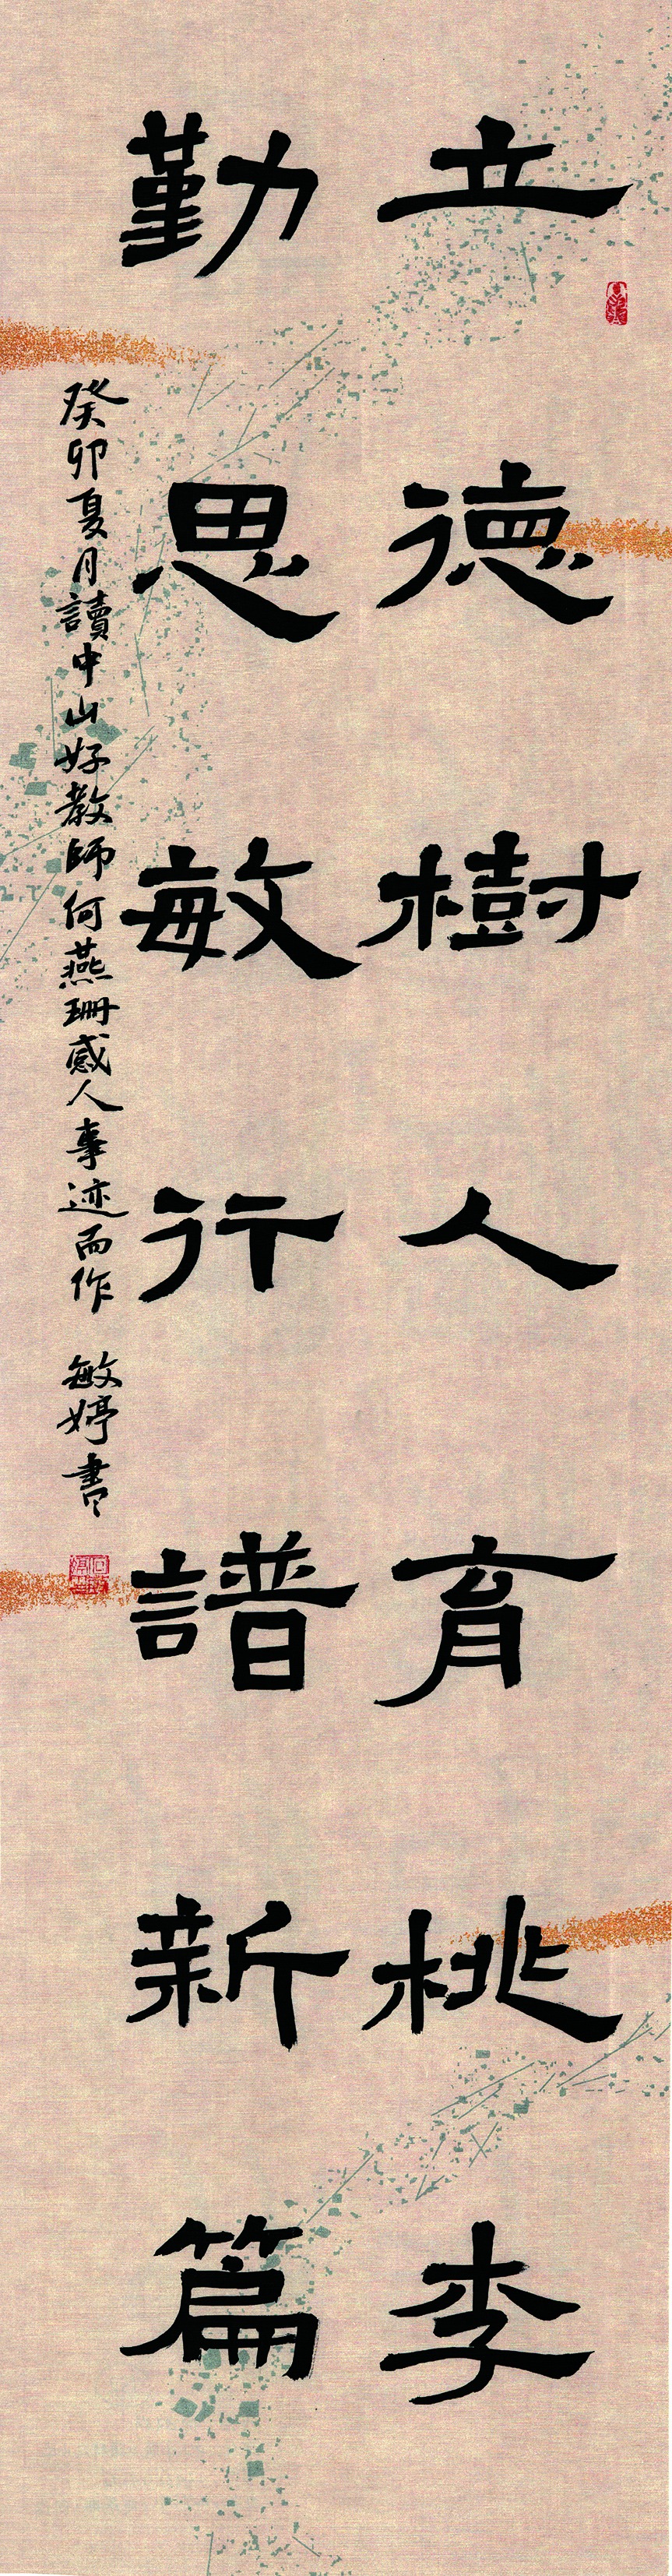 立德樹人育桃李
勤思敏行譜新篇
癸卯夏月讀中山好教師何燕珊感人事迹而作 敏婷書